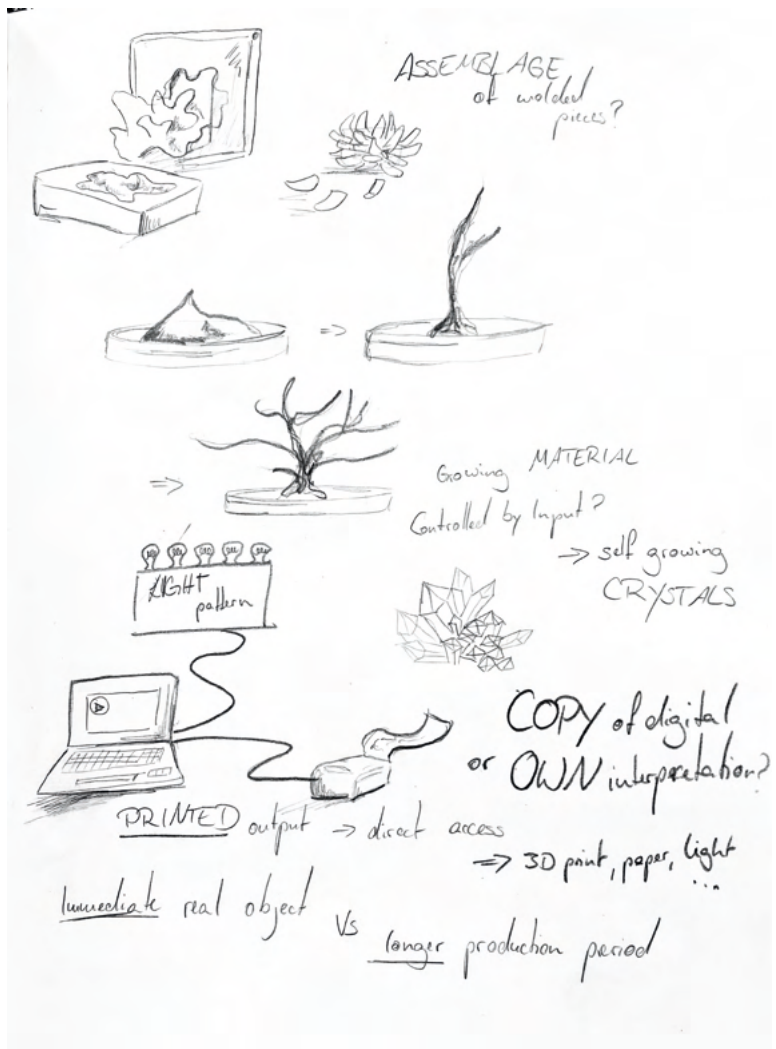 ASSEMBLAGE
of molded
pieces?
Growing MATERIAL
Controlled by Input?
⇒ self growing
CRYSTALS
LIGHT
pattern
COPY of digital
or OWN interpretation?
PRINTED output → direct access
⇒ 3D print, paper, light
...
Immediate real object
Vs
longer production period